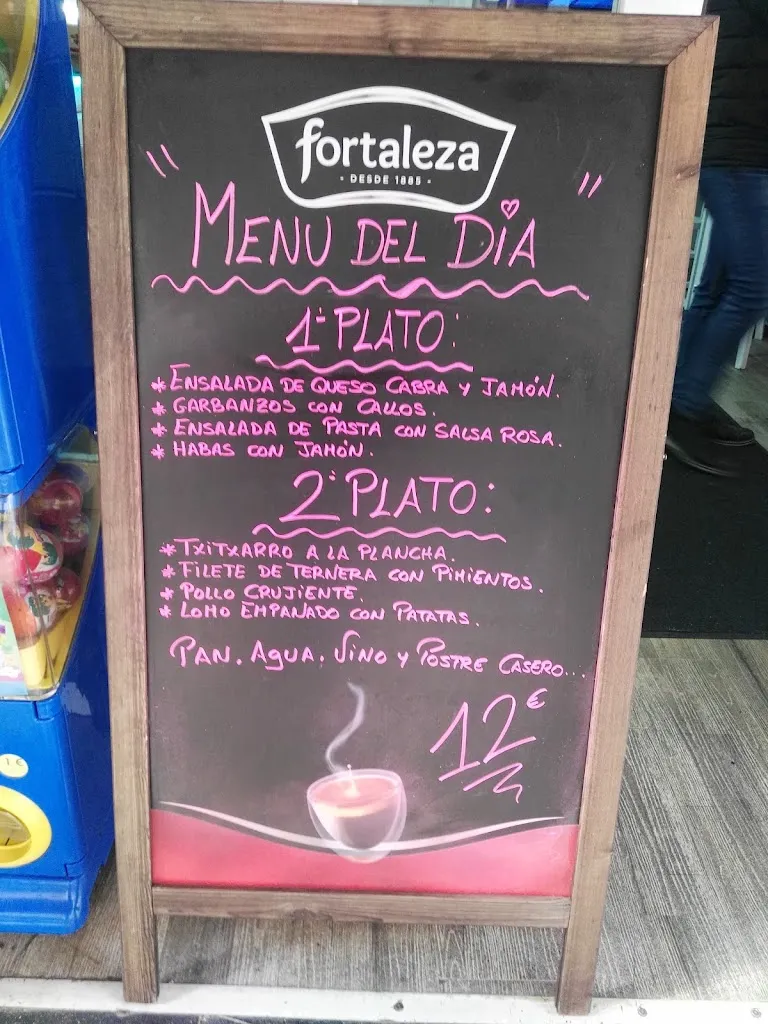 fortaleza
- DESDE 1885 -
" MENU DEL DIA "
1º PLATO:
* ENSALADA DE QUESO CABRA Y JAMÓN.
* GARBANZOS CON CALLOS.
* ENSALADA DE PASTA CON SALSA ROSA.
* HABAS CON JAMÓN.
2º PLATO:
* TXITXARRO A LA PLANCHA.
* FILETE DE TERNERA CON PIMIENTOS.
* POLLO CRUJIENTE.
* LOMO EMPANADO CON PATATAS.
PAN. AGUA. VINO Y POSTRE CASERO...
12€
1€